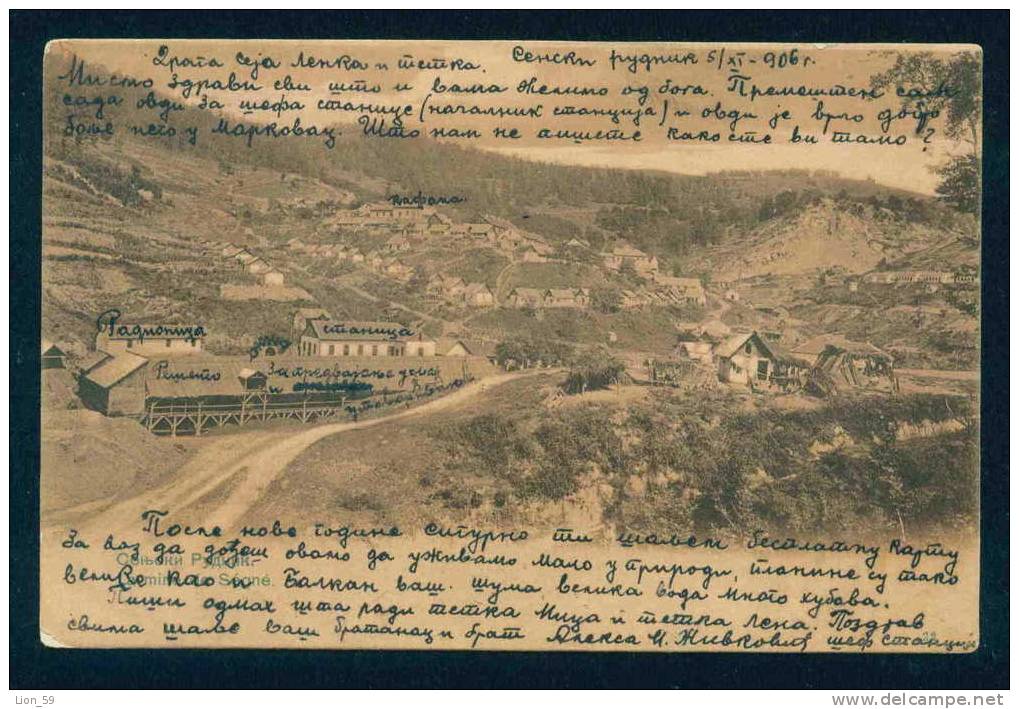 Драга сеја Ленка и тетка. Сенски рудник 5/XI - 906 г.
Ми смо здрави сви што и вама желимо од бога. Премештен сам
сада овди за шефа станице (началник станција) и овди је врло добро
боље него у Марковац. Што нам не пишете како сте ви тамо?
кафана
Радионица
станица
Решето
За предавање угља
и
После нове године сигурно ти шаљем бесплатну карту
За воз да дођеш овамо да уживамо мало у природи, планине су тако
Сењски Рудник.
велике као Балкан ваш. шума, велика вода много хубава.
DominSégné.
Пиши одмах шта ради тетка Мица и тетка Лена. Поздрав
свима шаље ваш братанац и брат Алекса М. Живковић шеф станције
Lion_59
www.delcampe.net